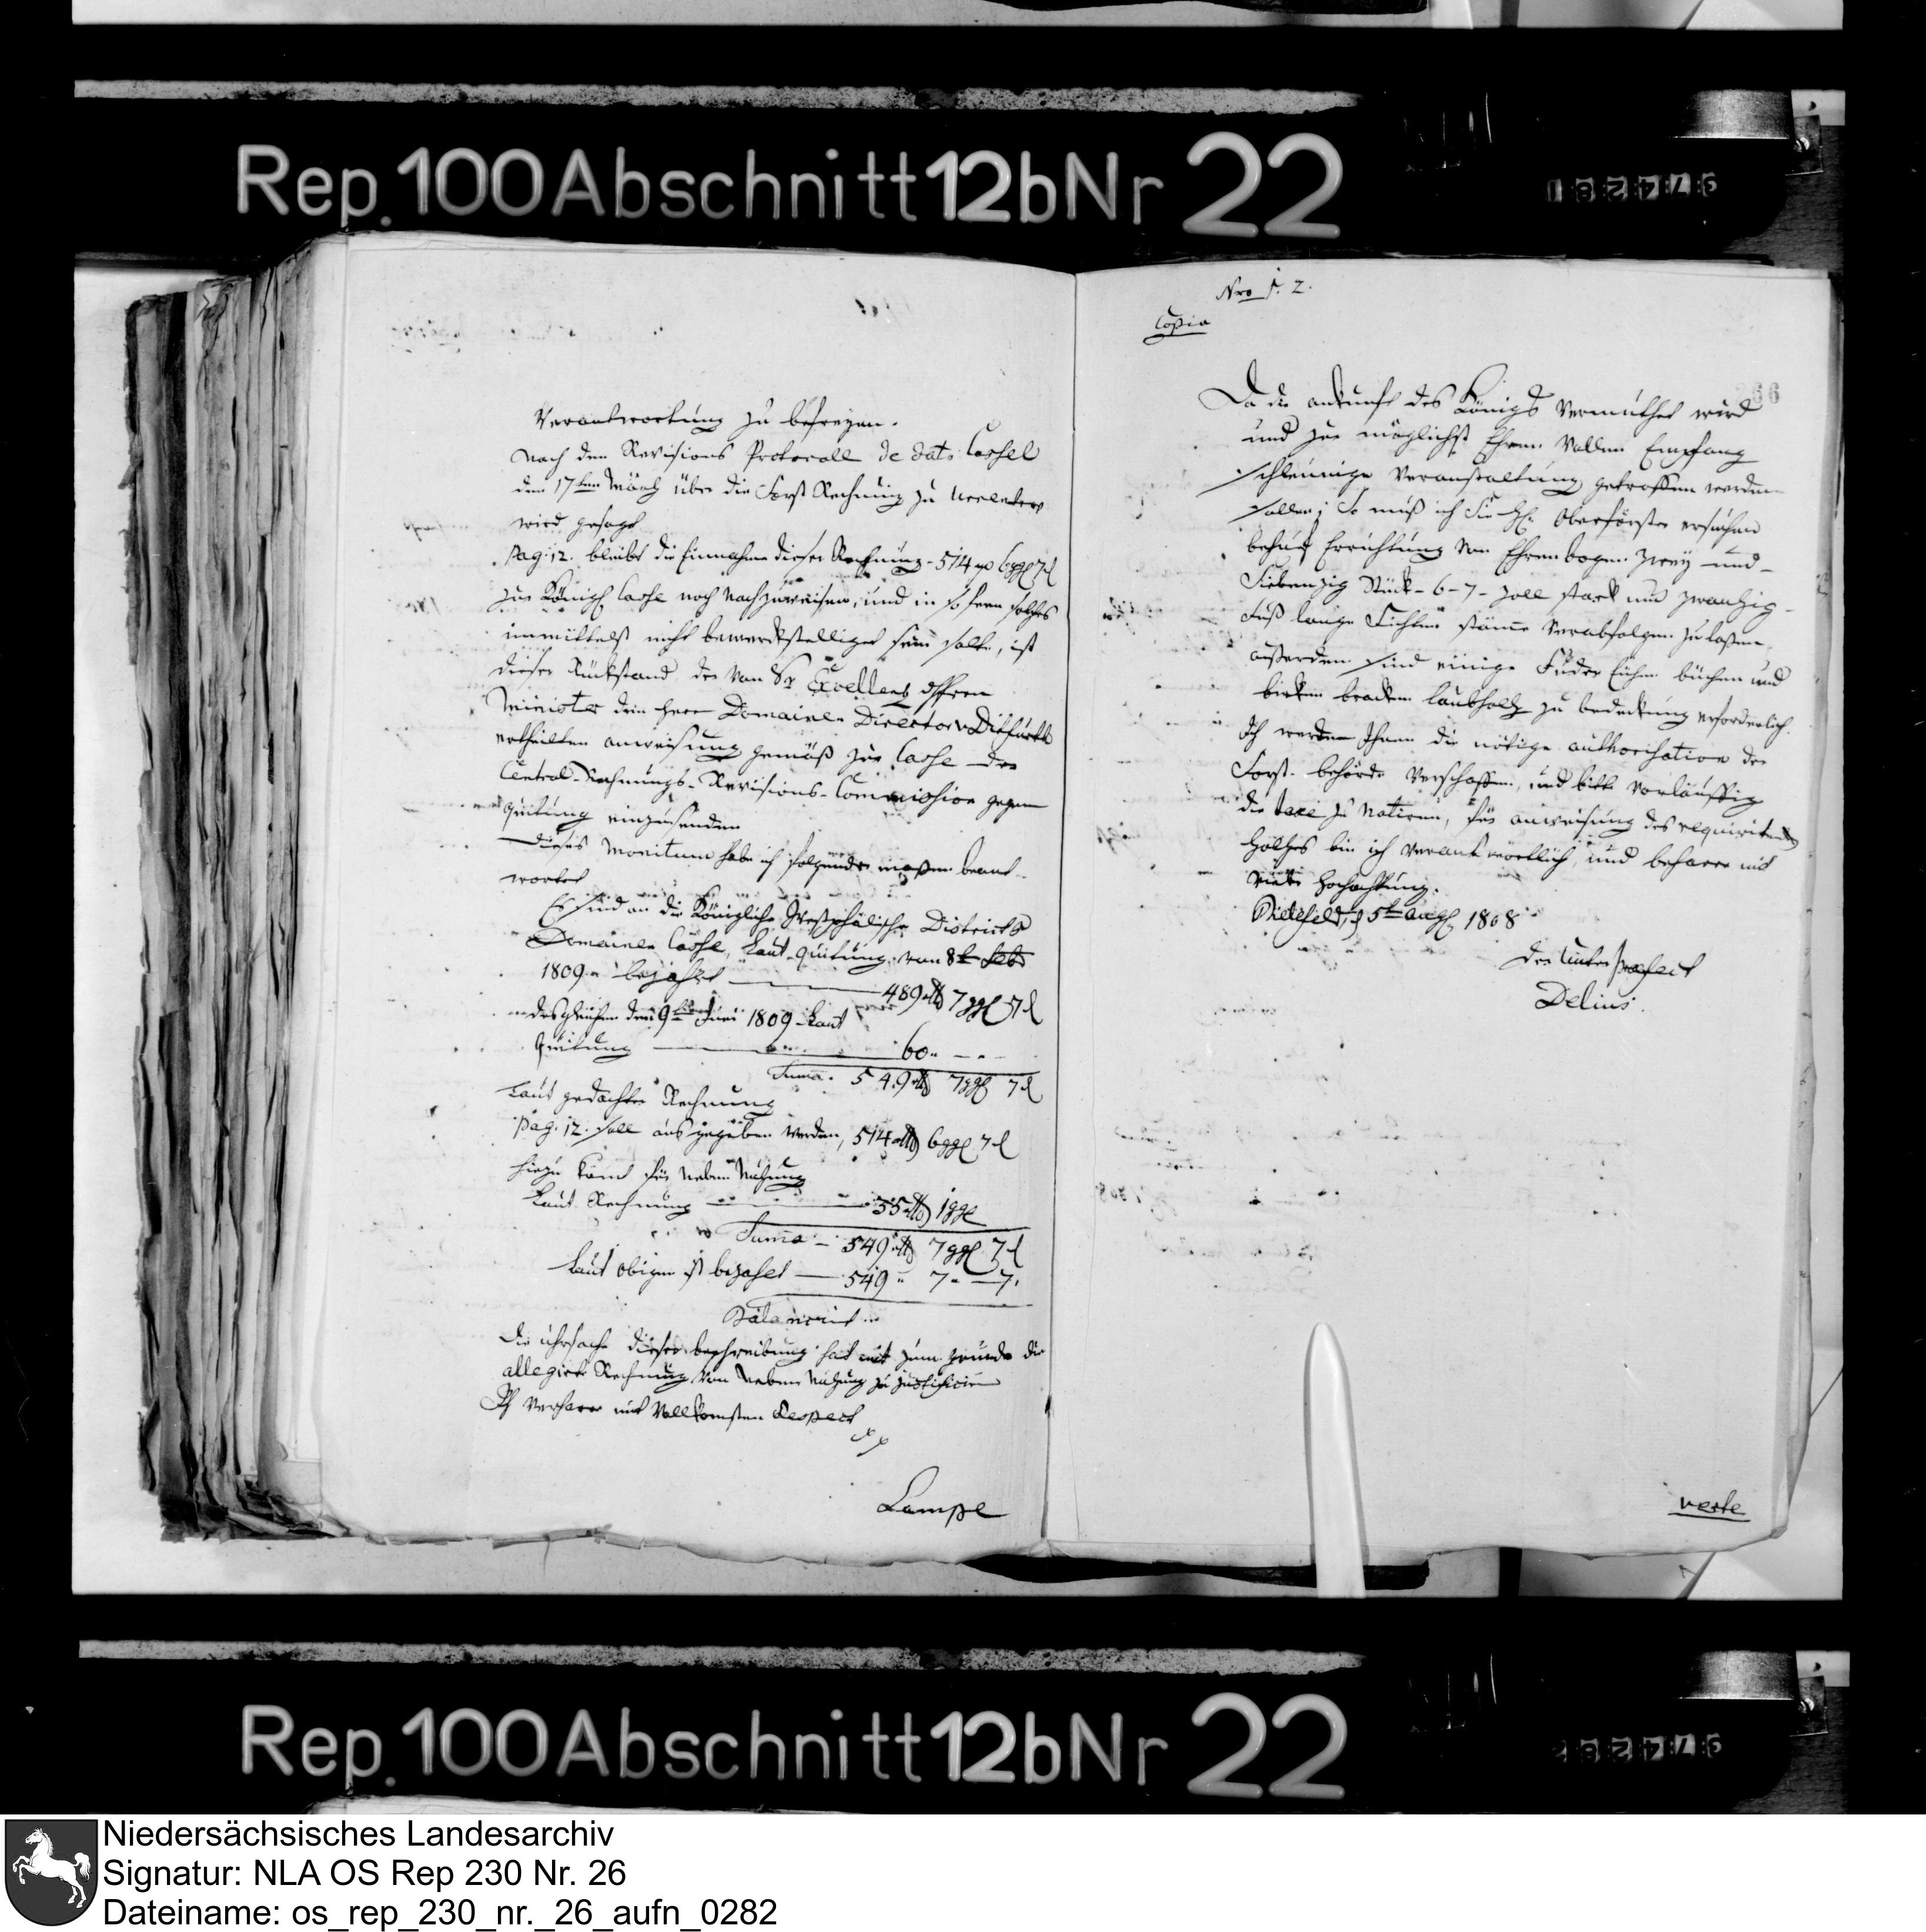 Rep. 100 Abschnitt 12b Nr 22
Verantwortung zu befreyen.
Nach dem Revisions Protocoll de dato Cassel
den 17ten März über die Forst Rechnung zu
wird gesagt
pag: 12. bleibt die Einnahme dieser Rechnung - 514 6 ggl 7 d
zur Königl Casse noch nachzuweisen, und in so fern solches
immittelst nicht bewerckstelliget sein solte, ist
dieser Rückstand der von Sr Excellenz
Minister dem Herr Domainen Director v Ditfurth
ertheilten anweisung gemäß zur Casse der
Central-Rechnungs-Revisions-Commission gegen
quitung einzusenden
Dieses Monitum habe ich folgender maßen beant-
wortet
Es sind an die Königliche Westphälische Districts
Domainen Casse, Laut quitung vom 8t Febr
1809 bezahlt 489 rtl 7 ggl 7 d
desgleichen den 9ten Juni 1809 Laut
quitung 60 " - " -
Suma. 549 rtl 7 ggl 7 d
Laut gedachter Rechnung
pag: 12. soll aus gegeben werden, 514 rtl 6 ggl 7 d
hiezu komt für Neben Nutzung
Laut Rechnung 35 rtl 1 ggl
Suma - 549 rtl 7 ggl 7 d
Laut obigen ist bezahlet — 549 " 7 " — 7.
Balancirt
Die uhrsache dieser beschreibung hat mit zum grunde die
allegirte Rechnung von Neben Nutzung zu justificiren
Ich verharre mit Vollkomsten Respect
Lampe
Nro 1. 2.
Copia
66
Da die ankunft des Königs vermuthet wird
und zur möglichst Ehren vollen Empfang
schleunige Veranstaltung getroffen werden
sollen; So muß ich Sie H. Oberförster ersuchen
behuf Errichtung von Ehrenbogen zwey und
Siebenzig Stück - 6 - 7 - Zoll stark und zwanzig
Fuß lange Fichten stäme verabfolgen zu laßen,
außerdem sind einige Fuder Eichen büchen und
birken braken laubholtz zu bedeckung erforderlich.
Ich werde Ihnen die nötige authorisation der
Forst-behörde verschaffen, und bitte vorläuffig
die taxe zu notiren, für anweisung des requirirten
Holtzes bin ich verantwortlich, und beharre mit
Hochachtung.
d 5ten Aug 1808
Der Unter praefect
Delius.
verte
Rep. 100 Abschnitt 12b Nr 22
Niedersächsisches Landesarchiv
Signatur: NLA OS Rep 230 Nr. 26
Dateiname: os_rep_230_nr._26_aufn_0282